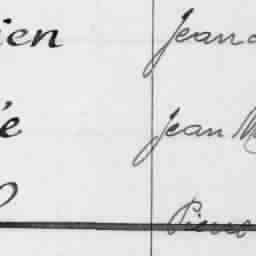 ien Jean
é Jean M
Pierre